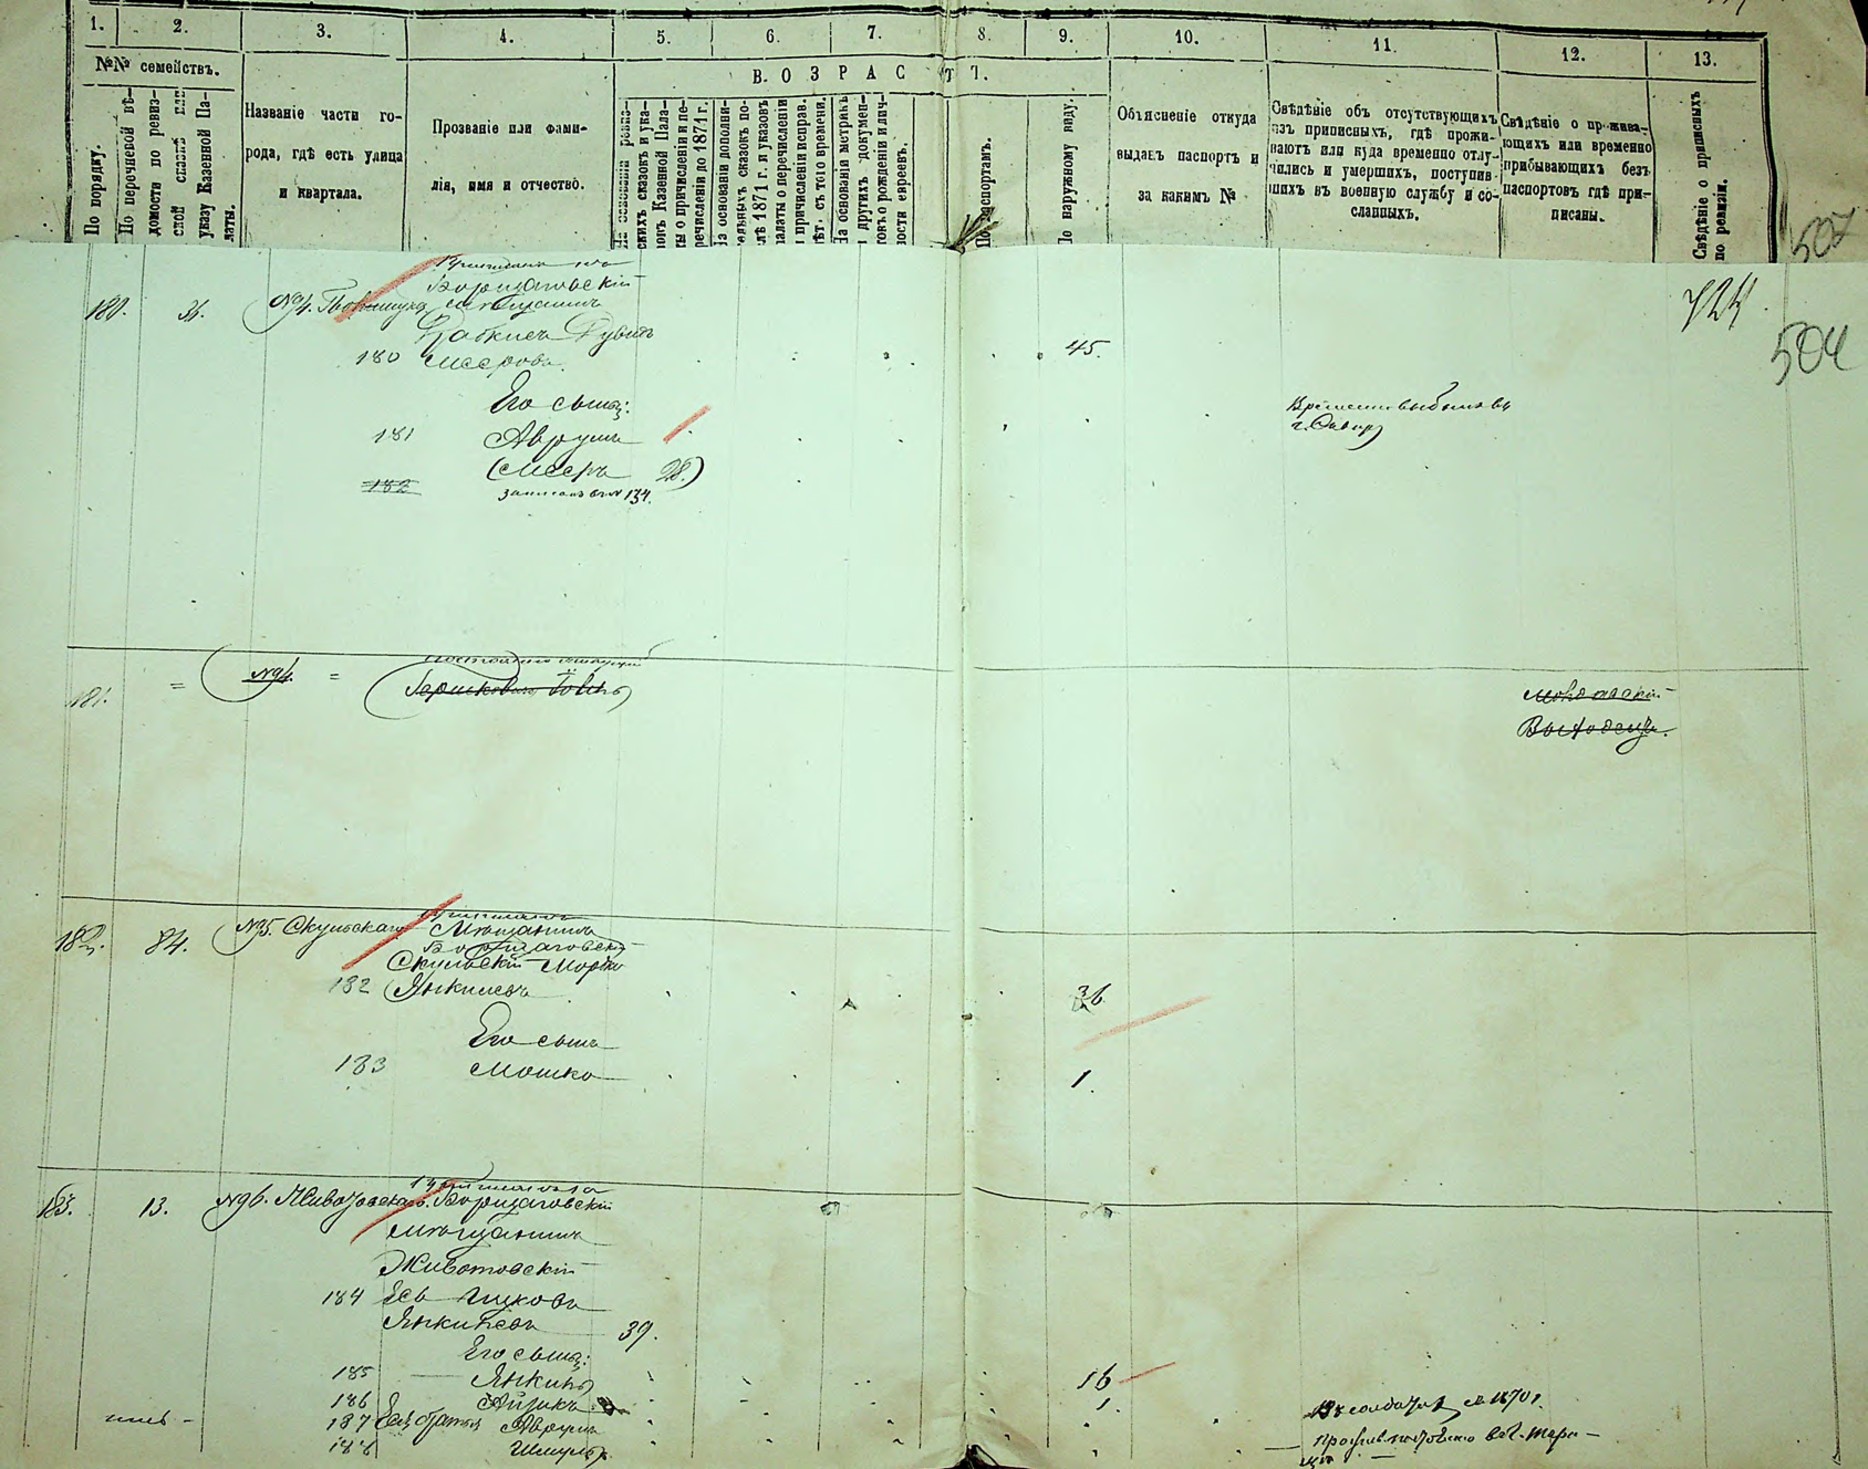 1. 2. 3. 4. 5. 6. 7. 8. 9. 10. 11. 12. 13.
№№ семействъ.
ВОЗРАСТЪ.
По порядку.
По перечневой вѣ-
домости по ревиз-
ской сказкѣ или
указу Казенной Па-
латы.
Названіе части го-
рода, гдѣ есть улица
и квартала.
Прозваніе или фами-
лія, имя и отчество.
На основаніи ревиз-
скихъ сказокъ и ука-
зовъ Казенной Пала-
ты о причисленіи и пе-
речисленіи до 1871 г.
На основаніи дополни-
тельныхъ сказокъ по-
слѣ 1871 г. и указовъ
палаты о перечисленіи
и причисленіи исправ.
лѣт. съ того времени.
На основаніи метрикъ
и другихъ докумен-
товъ о рожденіи и лич-
ности евреевъ.
По паспортамъ.
По наружному виду.
Объясненіе откуда
выданъ паспортъ и
за какимъ №
Свѣдѣніе объ отсутствующихъ
изъ приписныхъ, гдѣ прожи-
ваютъ или куда временно отлу-
чились и умершихъ, поступив-
шихъ въ военную службу и со-
сланныхъ.
Свѣдѣніе о прожива-
ющихъ или временно
прибывающихъ безъ
паспортовъ гдѣ при-
писаны.
Свѣдѣніе о приписныхъ
по ревизіи.
507
724
504
180. 31. №94.
Борщаговскій
мѣщанинъ
Дувидъ
180 Меерова. 45.
Его сыны:
181 Аврумъ
Временно выбылъ въ
(Мееръ 28.)
182 записанъ въ № 134.
181. = №94. =
Гершковичъ
Выходецъ.
182. 84. №95. Скульскаго
Мѣщанинъ
Борщаговскій
Скульскій Мошко
182 Янкилевъ 36
Его сынъ
183 Мошко 1.
183. 13. №96. Животовскаго. Борщаговскій
мѣщанинъ
Животовскій
184 Ось
Янкилевъ 39.
Его сыны:
185 Янкиль 16
186 Айзикъ 1.
Въ солдатахъ съ 1870 г.
187 Его братья Аврумъ
188 Шмуль